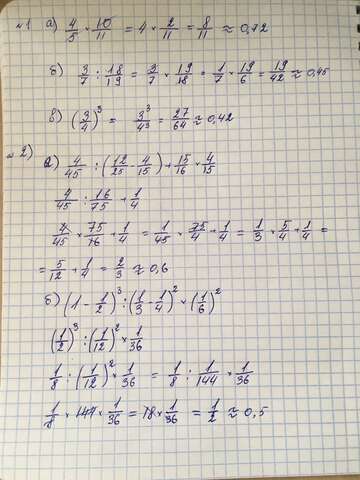 №1 а) 4/5 × 10/11 = 4 × 2/11 = 8/11 ≈ 0,72
б) 3/7 : 18/19 = 3/7 × 19/18 = 1/7 × 19/6 = 19/42 ≈ 0,45
в) (3/4)³ = 3³/4³ = 27/64 ≈ 0,42
№2) а) 4/45 : (12/25 - 4/15) + 15/16 × 4/15
4/45 : 16/75 + 1/4
4/45 × 75/16 + 1/4 = 1/45 × 75/4 + 1/4 = 1/3 × 5/4 + 1/4 =
= 5/12 + 1/4 = 2/3 ≈ 0,6
б) (1 - 1/2)³ : (1/3 - 1/4)² × (1/6)²
(1/2)³ : (1/12)² × 1/36
1/8 : (1/12)² × 1/36 = 1/8 : 1/144 × 1/36
1/8 × 144 × 1/36 = 18 × 1/36 = 1/2 ≈ 0,5